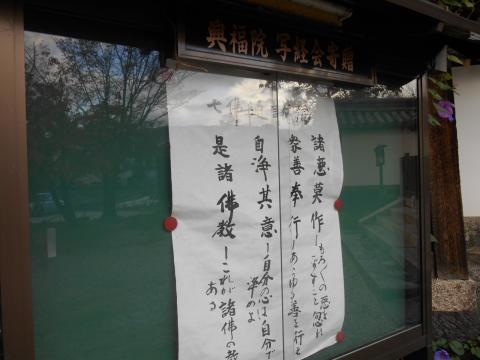 興福院 写経会寄贈
七佛通
諸悪莫作ーもろくの悪を
衆善奉行ーあらゆる善を行せ
自浄其意ー自分の心は自分で
浄めよ
是諸佛教ーこれが諸佛の教
である